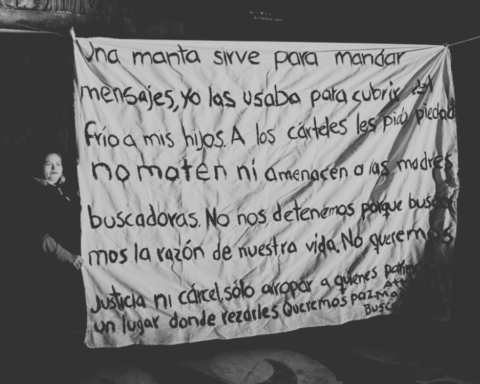 Una manta sirve para mandar
mensajes, yo las usaba para cubrir del
frío a mis hijos. A los cárteles les pido piedad
no maten ni amenacen a las madres
buscadoras. No nos detenemos porque busca
mos la razón de nuestra vida. No queremos
Justicia ni cárcel, sólo arropar a quienes parimos
un lugar donde rezarles Queremos paz